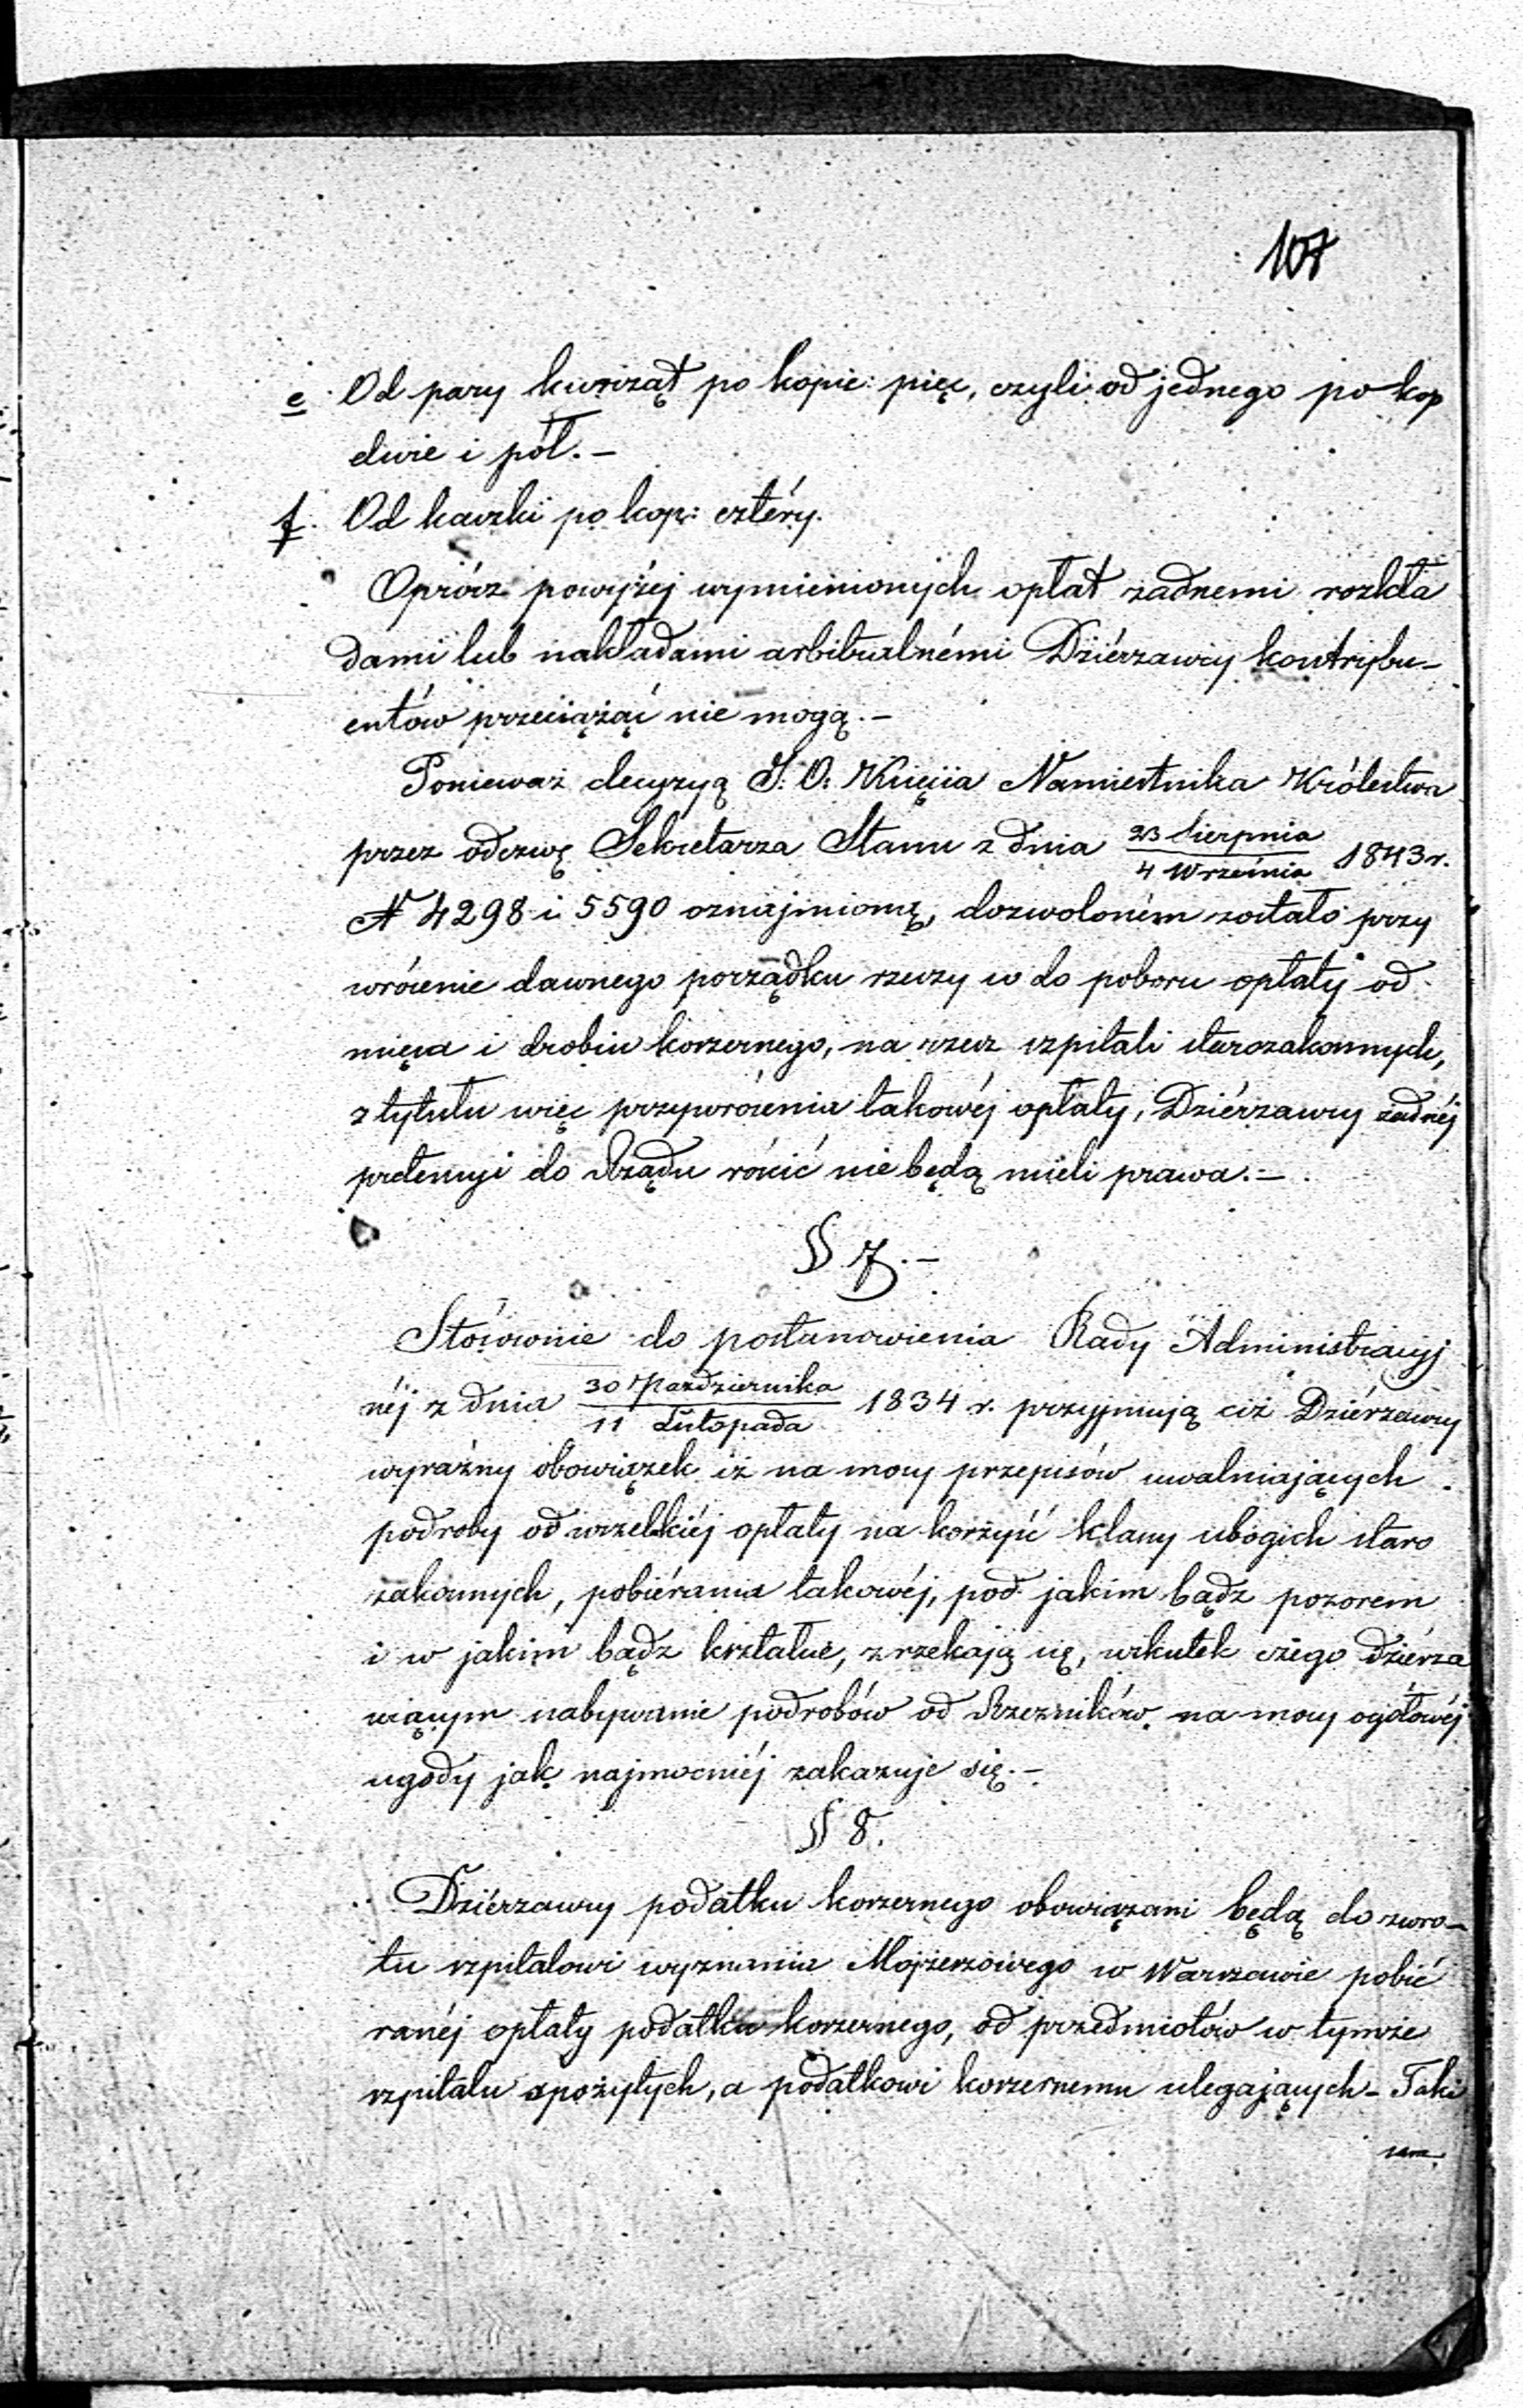 107
e. Od pary kurcząt po kopie: pięc, czyli od jednego po kop
dwie i pół. –
f. Od kaczki po kop: cztéry.
Oprócz powyżéj wymienionych opłat żadnemi rozkła
dami lub nakładami arbitralnémi Dziérżawcy kontrybu–
entów przeciążać nie mogą. –
Ponieważ decyzyą J. O. Xięcia Namiestnika Królestwa
przez odezwę Sekretarza Stanu z dnia 23 Sierpnia / 4 Września 1843 r.
N 4298 i 5590 oznajmioną, dozwoloném zostało przy
wrócenie dawnego porządku rzeczy co do poboru opłaty od
mięsa i drobiu koszernego, na rzecz szpitali starozakonnych,
z tytułu więc przywrócenia takowéj opłaty, Dziérżawcy żadnéj
pretensyi do Rządu rościć nie będą mieli prawa. –
§ 7. –
Stósownie do postanowienia Rady Administracyj
néj z dnia 30 Października / 11 Listopada 1834 r. przyjmują ciż Dziérżawcy
wyraźny obowiązek iż na mocy przepisów uwalniających
podroby od wszelkiéj opłaty na korzyść klassy ubogich staro
zakonnych, pobiérania takowéj, pod jakim bądź pozorem
i w jakim bądź kształcie, zrzekają się, wskutek czego dziérża
wiącym nabywanie podrobów od Rzezników na mocy ogółowéj
ugody jak najmocniéj zakazuje się. –
§ 8.
Dziérżawcy podatku koszernego obowiązani będą do zwro–
tu szpitalowi wyznania Mojżeszowego w Warszawie pobié
ranéj opłaty podatku koszernego, od przedmiotów w tymże
szpitalu spożytych, a podatkowi koszernemu ulegających – Taki
sam.